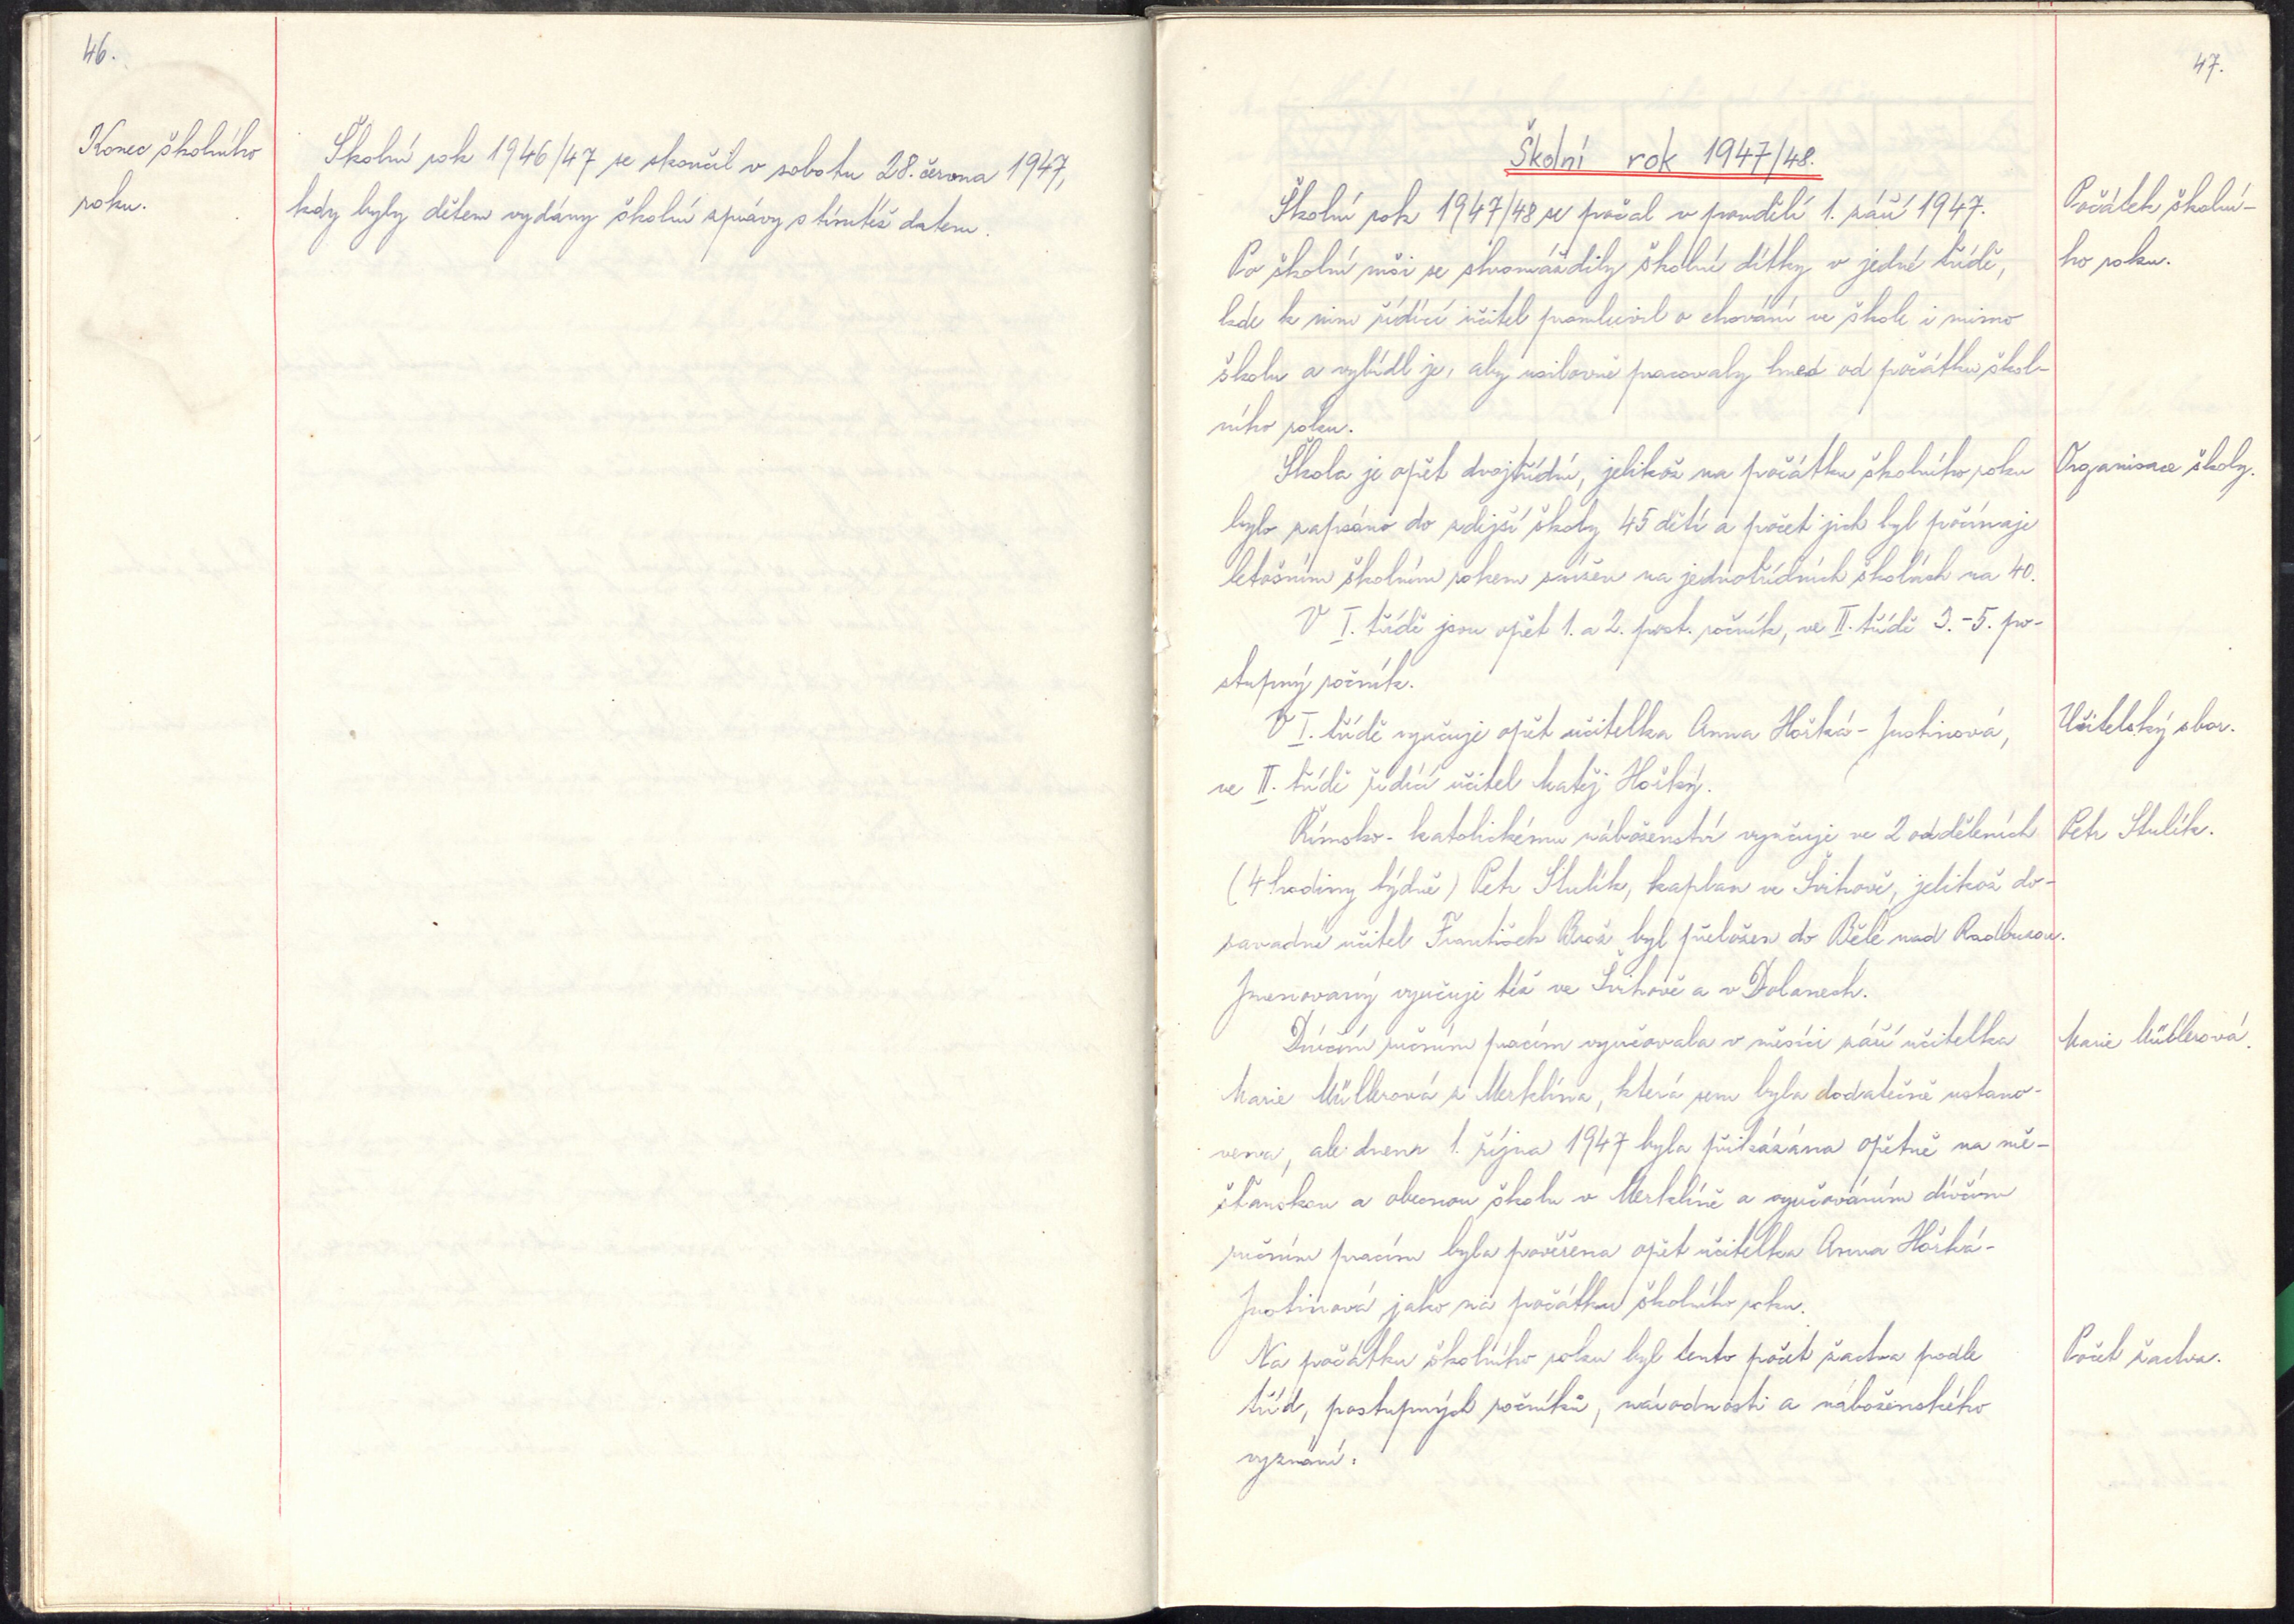 46.
Konec školního
roku.
Školní rok 1946/47 se skončil v sobotu 28. června 1947,
kdy byly dětem vydány školní zprávy s tímtéž datem.
47.
Školní rok 1947/48.
Školní rok 1947/48 se počal v pondělí 1. září 1947.
Počátek školní-
Po školní mši se shromáždily školní dítky v jedné třídě,
ho roku.
kde k nim řídící učitel promluvil o chování ve škole i mimo
školu a vybídl je, aby usilovně pracovaly hned od počátku škol-
ního roku.
Škola je opět dvojtřídní, jelikož na počátku školního roku
Organisace školy.
bylo zapsáno do zdejší školy 45 dětí a počet jich byl počínaje
letošním školním rokem snížen na jednotřídních školách na 40.
V I. třídě jsou opět 1. a 2. post. ročník, ve II. třídě 3.-5. po-
stupný ročník.
V I. třídě vyučuje opět učitelka Anna Hořká-Justinová,
Učitelský sbor.
ve II. třídě řídící učitel Matěj Hořký.
Římsko-katolickému náboženství vyučuje ve 2 odděleních
Petr Stulík.
(4 hodiny týdně) Petr Stulík, kaplan ve Švihově, jelikož do-
savadní učitel František Brož byl přeložen do Bělé nad Radbuzou.
Jmenovaný vyučuje též ve Švihově a v Dolanech.
Dívčím ručním pracím vyučovala v měsíci září učitelka
Marie Müllerová.
Marie Müllerová z Merklína, která sem byla dodatečně ustano-
vena, ale dnem 1. října 1947 byla přikázána opětně na mě-
šťanskou a obecnou školu v Merklíně a vyučováním dívčím
ručním pracím byla pověřena opět učitelka Anna Hořká-
Justinová jako na počátku školního roku.
Na počátku školního roku byl tento počet žactva podle
Počet žactva.
tříd, postupných ročníků, národnosti a náboženského
vyznání: